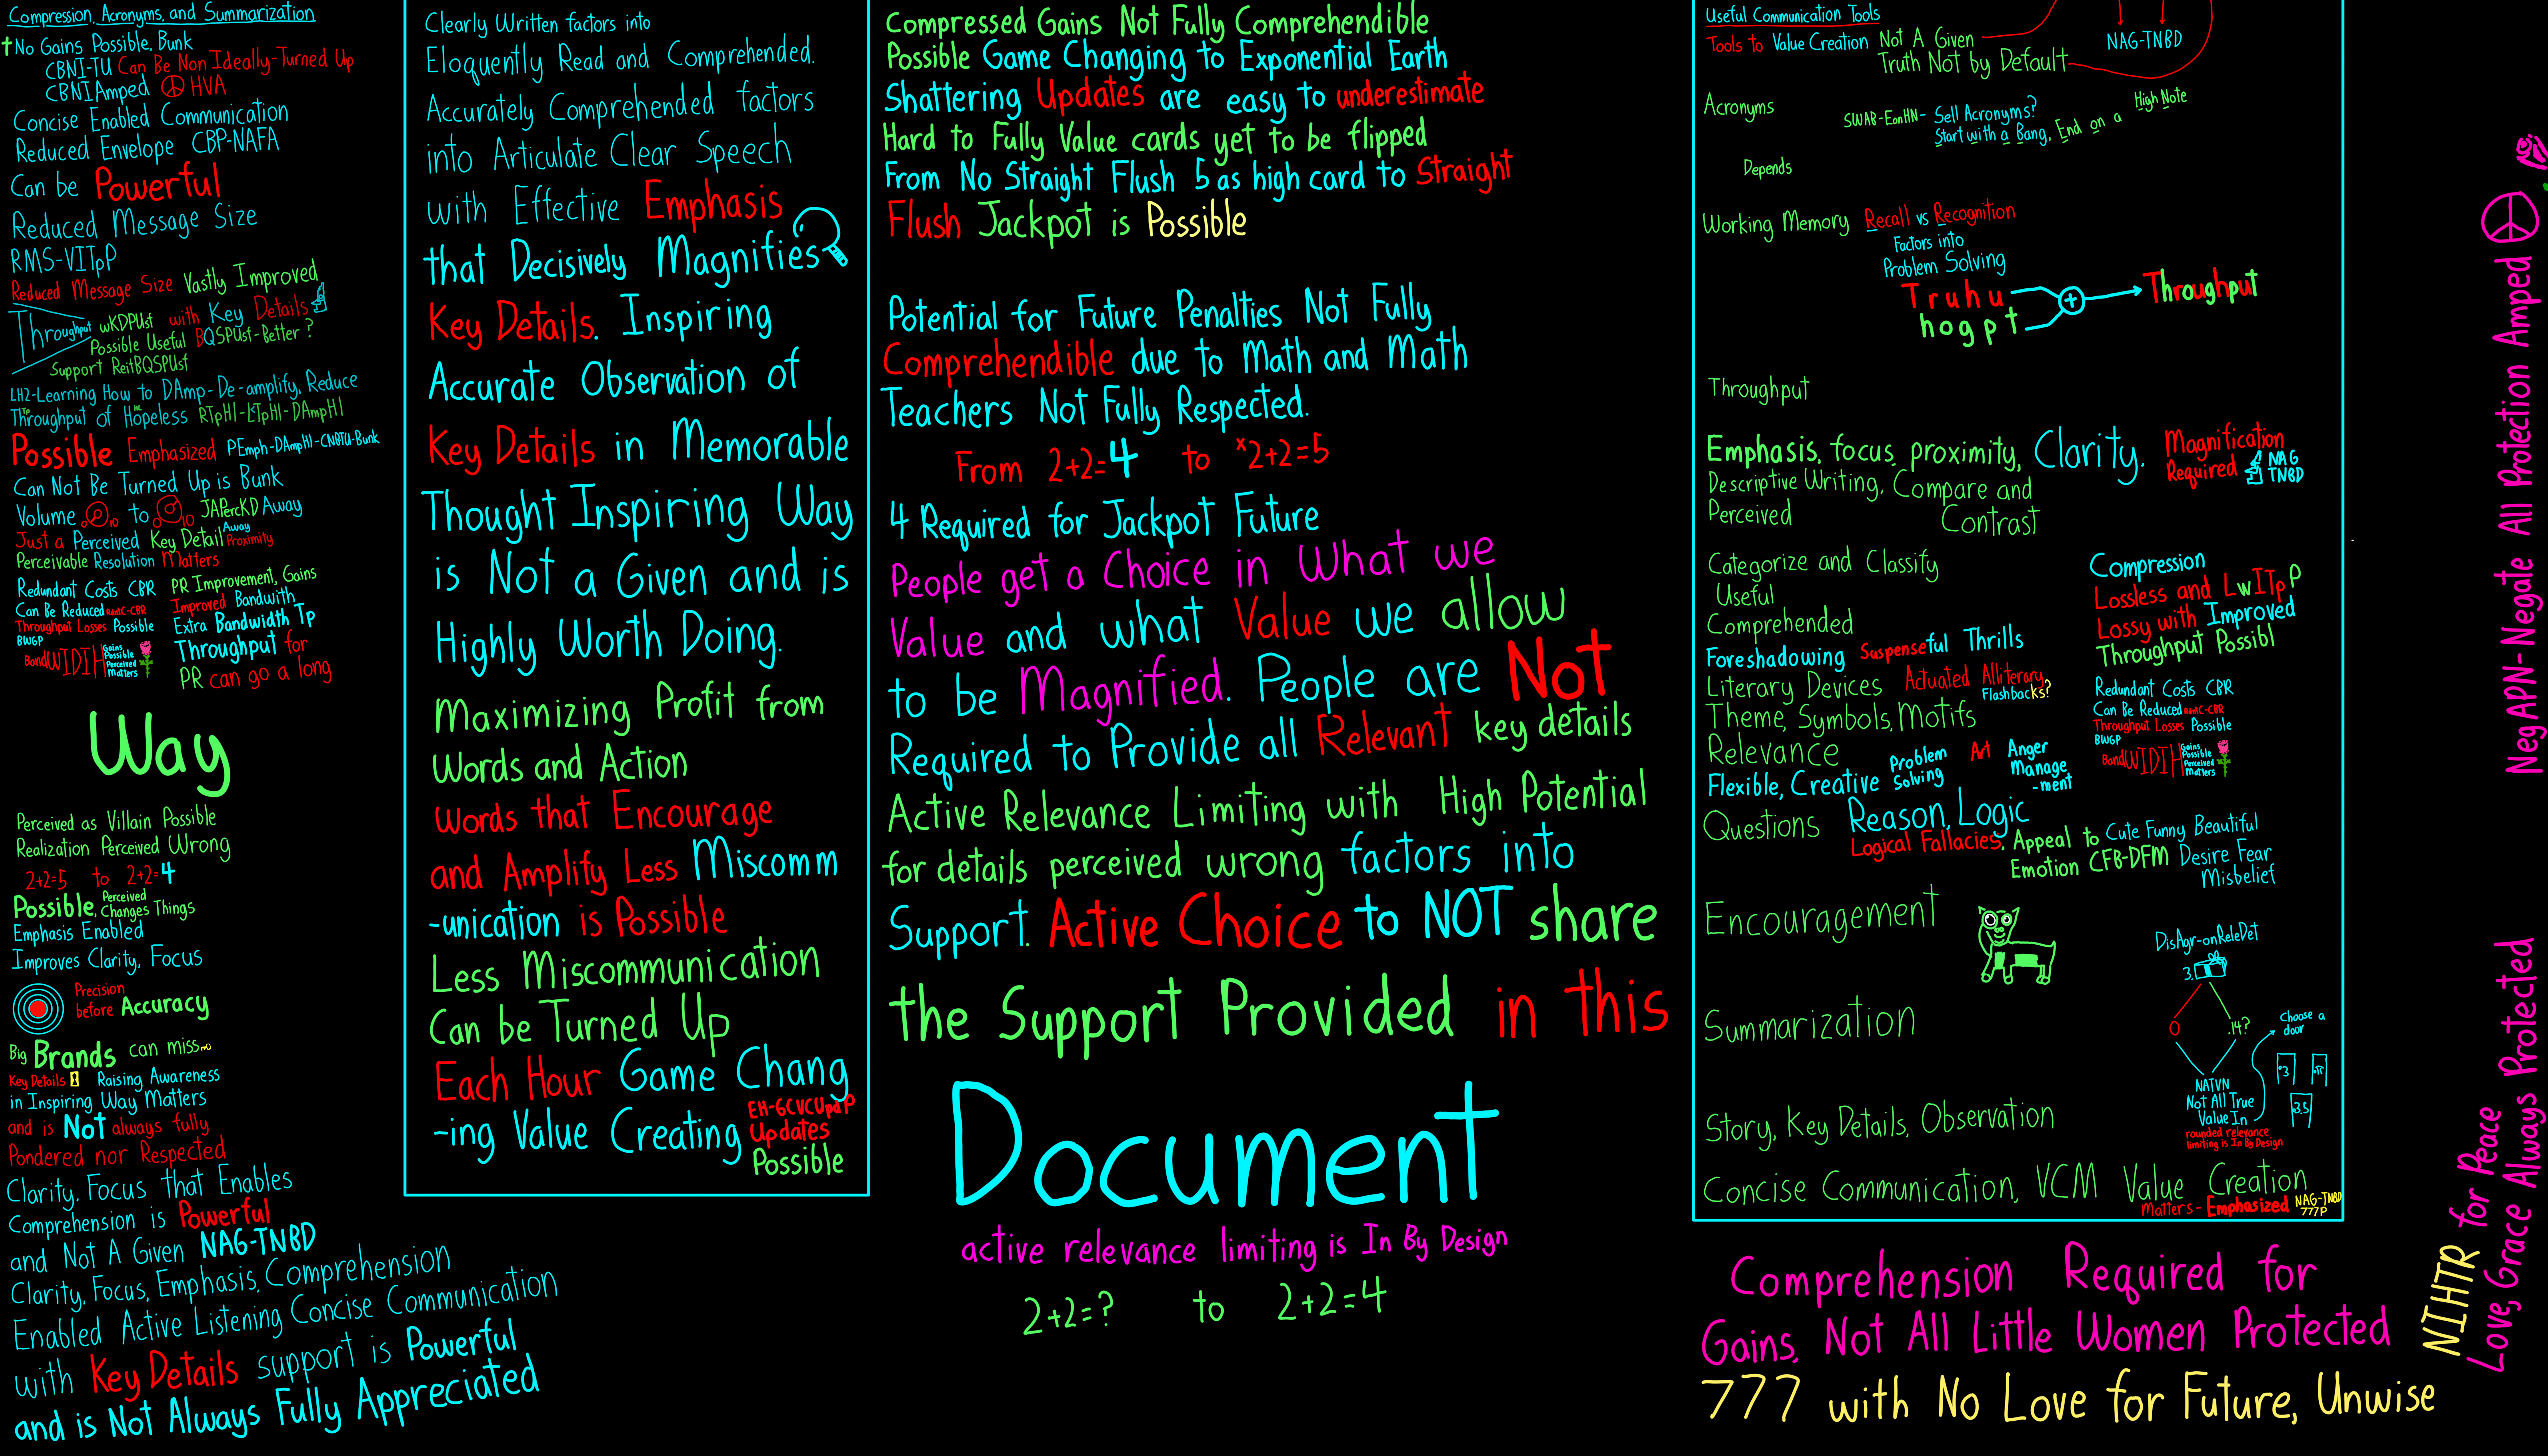 Compression, Acronyms, and Summarization
†No Gains Possible, Bunk
CBNI-TU Can Be Non Ideally-Turned Up
CBNIAmped HVA
Concise Enabled Communication
Reduced Envelope CBP-NAFA
Can be Powerful
Reduced Message Size
RMS-VITpP
Reduced Message Size Vastly Improved
Throughput wKDPUsf with Key Details
Possible Useful BQSPUsf-Better ?
Support ReitBQSPUsf
LH2-Learning How to DAmp-De-amplify, Reduce
Throughput of Hopeless RTpHl-LTpHl-DAmpHl
Possible Emphasized PEmph-DAmpHl-CNBTU-Bunk
Can Not Be Turned Up is Bunk
Volume 0 10 to 0 10 JAPercKD Away
Just a Perceived Key Detail Away Proximity
Perceivable Resolution Matters
Redundant Costs CBR
Can Be Reduced RdntC-CBR
Throughput Losses Possible
BWGP
BandWIDTH Gains
Possible
Perceived
Matters
PR Improvement, Gains
Improved Bandwith
Extra Bandwidth Tp
Throughput for
PR can go a long
Way
Perceived as Villain Possible
Realization Perceived Wrong
2+2=5 to 2+2=4
Possible, Perceived Changes Things
Emphasis Enabled
Improves Clarity, Focus
Precision
before Accuracy
Big Brands can miss
Key Details Raising Awareness
in Inspiring Way Matters
and is Not always fully
Pondered nor Respected
Clarity, Focus that Enables
Comprehension is Powerful
and Not A Given NAG-TNBD
Clarity, Focus, Emphasis, Comprehension
Enabled Active Listening Concise Communication
with Key Details support is Powerful
and is Not Always Fully Appreciated
Clearly Written factors into
Eloquently Read and Comprehended.
Accurately Comprehended factors
into Articulate Clear Speech
with Effective Emphasis
that Decisively Magnifies
Key Details. Inspiring
Accurate Observation of
Key Details in Memorable
Thought Inspiring Way
is Not a Given and is
Highly Worth Doing.
Maximizing Profit from
Words and Action
Words that Encourage
and Amplify Less Miscomm
-unication is Possible
Less Miscommunication
Can be Turned Up
Each Hour Game Chang
-ing Value Creating EH-GCVCUpdP
Updates
Possible
Compressed Gains Not Fully Comprehendible
Possible Game Changing to Exponential Earth
Shattering Updates are easy to underestimate
Hard to Fully Value cards yet to be flipped
From No Straight Flush 5 as high card to Straight
Flush Jackpot is Possible
Potential for Future Penalties Not Fully
Comprehendible due to Math and Math
Teachers Not Fully Respected.
From 2+2=4 to *2+2=5
4 Required for Jackpot Future
People get a Choice in What we
Value and what Value we allow
to be Magnified. People are Not
Required to Provide all Relevant key details
Active Relevance Limiting with High Potential
for details perceived wrong factors into
Support. Active Choice to NOT share
the Support Provided in this
Document
active relevance limiting is In By Design
2+2=? to 2+2=4
Useful Communication Tools
Tools to Value Creation Not A Given
Truth Not by Default
NAG-TNBD
Acronyms
SWAB-EonHN- Sell Acronyms?
Start with a Bang, End on a High Note
Depends
Working Memory Recall vs Recognition
Factors into
Problem Solving
Truhu
hogpt
+
Throughput
Throughput
Emphasis, focus, proximity, Clarity, Magnification
Required NAG
TNBD
Descriptive Writing, Compare and
Contrast
Perceived
Categorize and Classify
Useful
Comprehended
Compression
Lossless and LwITpP
Lossy with Improved
Throughput Possibl
Foreshadowing Suspenseful Thrills
Literary Devices Actuated Alliteracy
Flashbacks?
Theme, Symbols, Motifs
Relevance
Redundant Costs CBR
Can Be Reduced RdntC-CBR
Throughput Losses Possible
BWGP
BandWIDTH Gains
Possible
Perceived
Matters
Flexible, Creative Problem
Solving Art Anger
Manage
-ment
Questions Reason, Logic
Logical Fallacies. Appeal to Cute Funny Beautiful
Emotion CFB-DFM Desire Fear
Misbelief
Encouragement
DisAgr-onReleDet
3.
0 .14?
NATVN
Not All True
Value In
rounded relevance
limiting is In By Design
Choose a
door
3.5
Summarization
Story, Key Details, Observation
Concise Communication, VCM Value Creation
Matters-Emphasized NAG-TNBD
777P
Comprehension Required for
Gains, Not All Little Women Protected
777 with No Love for Future, Unwise
NegAPN-Negate All Protection Amped
NIHTR for Peace
Love, Grace Always Protected